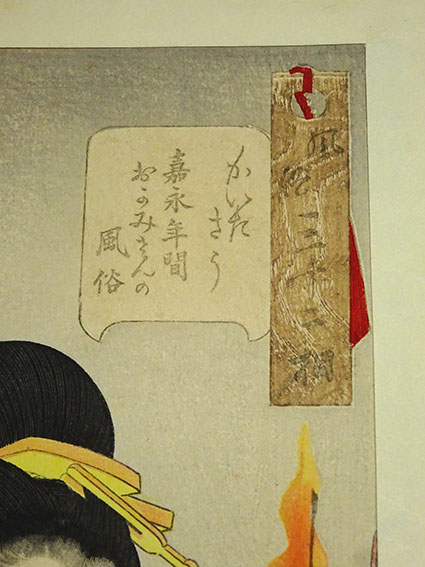 風俗三十二相
かいた
さう
嘉永年間
おかみさんの
風俗